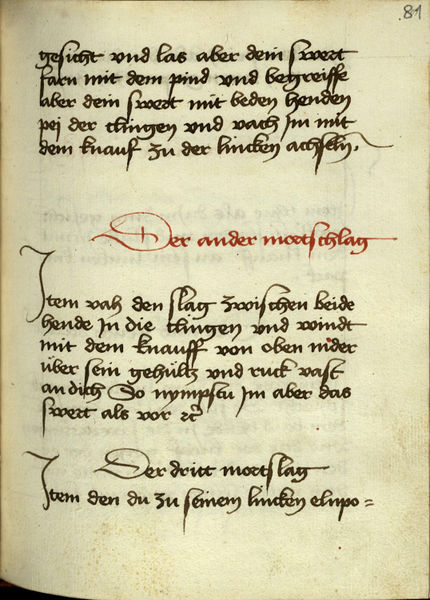 81
gesicht vnd las aber dein swert
farn mit dem pind vnd begreiffe
aber dein swert mit beden henden
pei der clingen vnd vach Im mit
dem knauf zu der lincken achseln.
Der ander mortschlag
Item vah den slag zwischen beide
hende In die clingen vnd windt
mit dem knauff von oben nider
über sein gehültz vnd ruck vast
an dich So nympstu Im aber das
swert als vor ꝛc
Der dritt mortslag
Item den du zu seinem lincken elnpo=